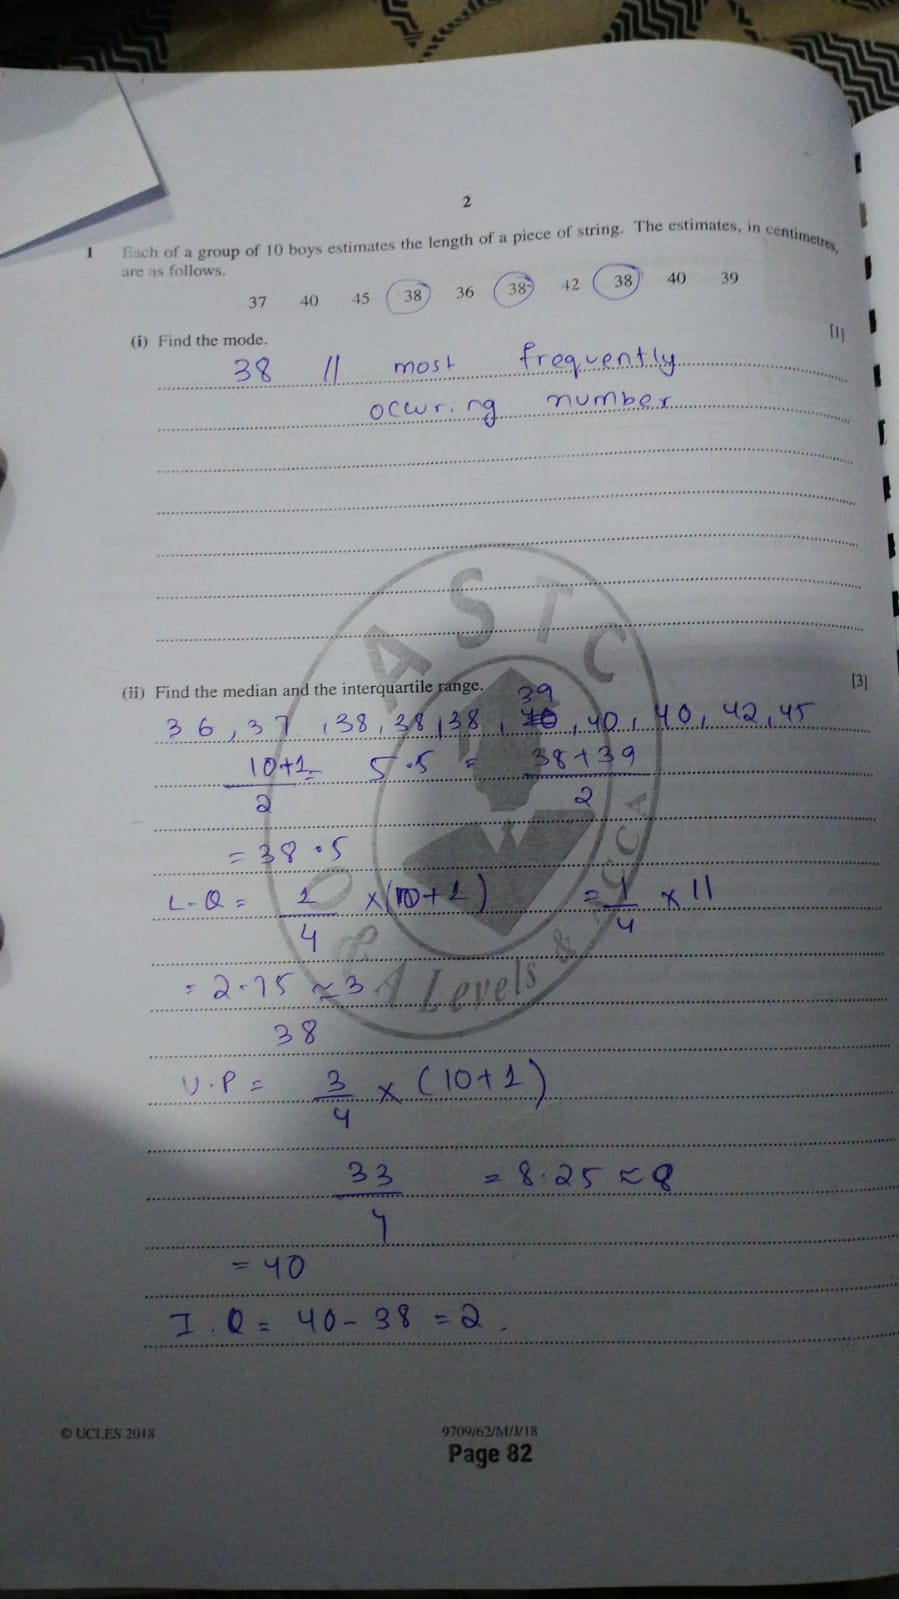 2
1 Each of a group of 10 boys estimates the length of a piece of string. The estimates, in centimetres,
are as follows.
37 40 45 38 36 38 42 38 40 39
(i) Find the mode. [1]
38 // most frequently
occuring number
(ii) Find the median and the interquartile range. [3]
39
36, 37, 38, 38, 38, 40, 40, 40, 42, 45
10+1/2 = 5.5 = 38+39/2
= 38.5
L-Q = 1/4 ×(10+1) = 1/4 × 11
= 2.75 ≈ 3
38
U.P = 3/4 × (10+1)
33/4 = 8.25 ≈ 8
= 40
I.Q = 40 - 38 = 2.
ASTC
O & A Levels & ACCA
© UCLES 2018
9709/62/M/J/18
Page 82